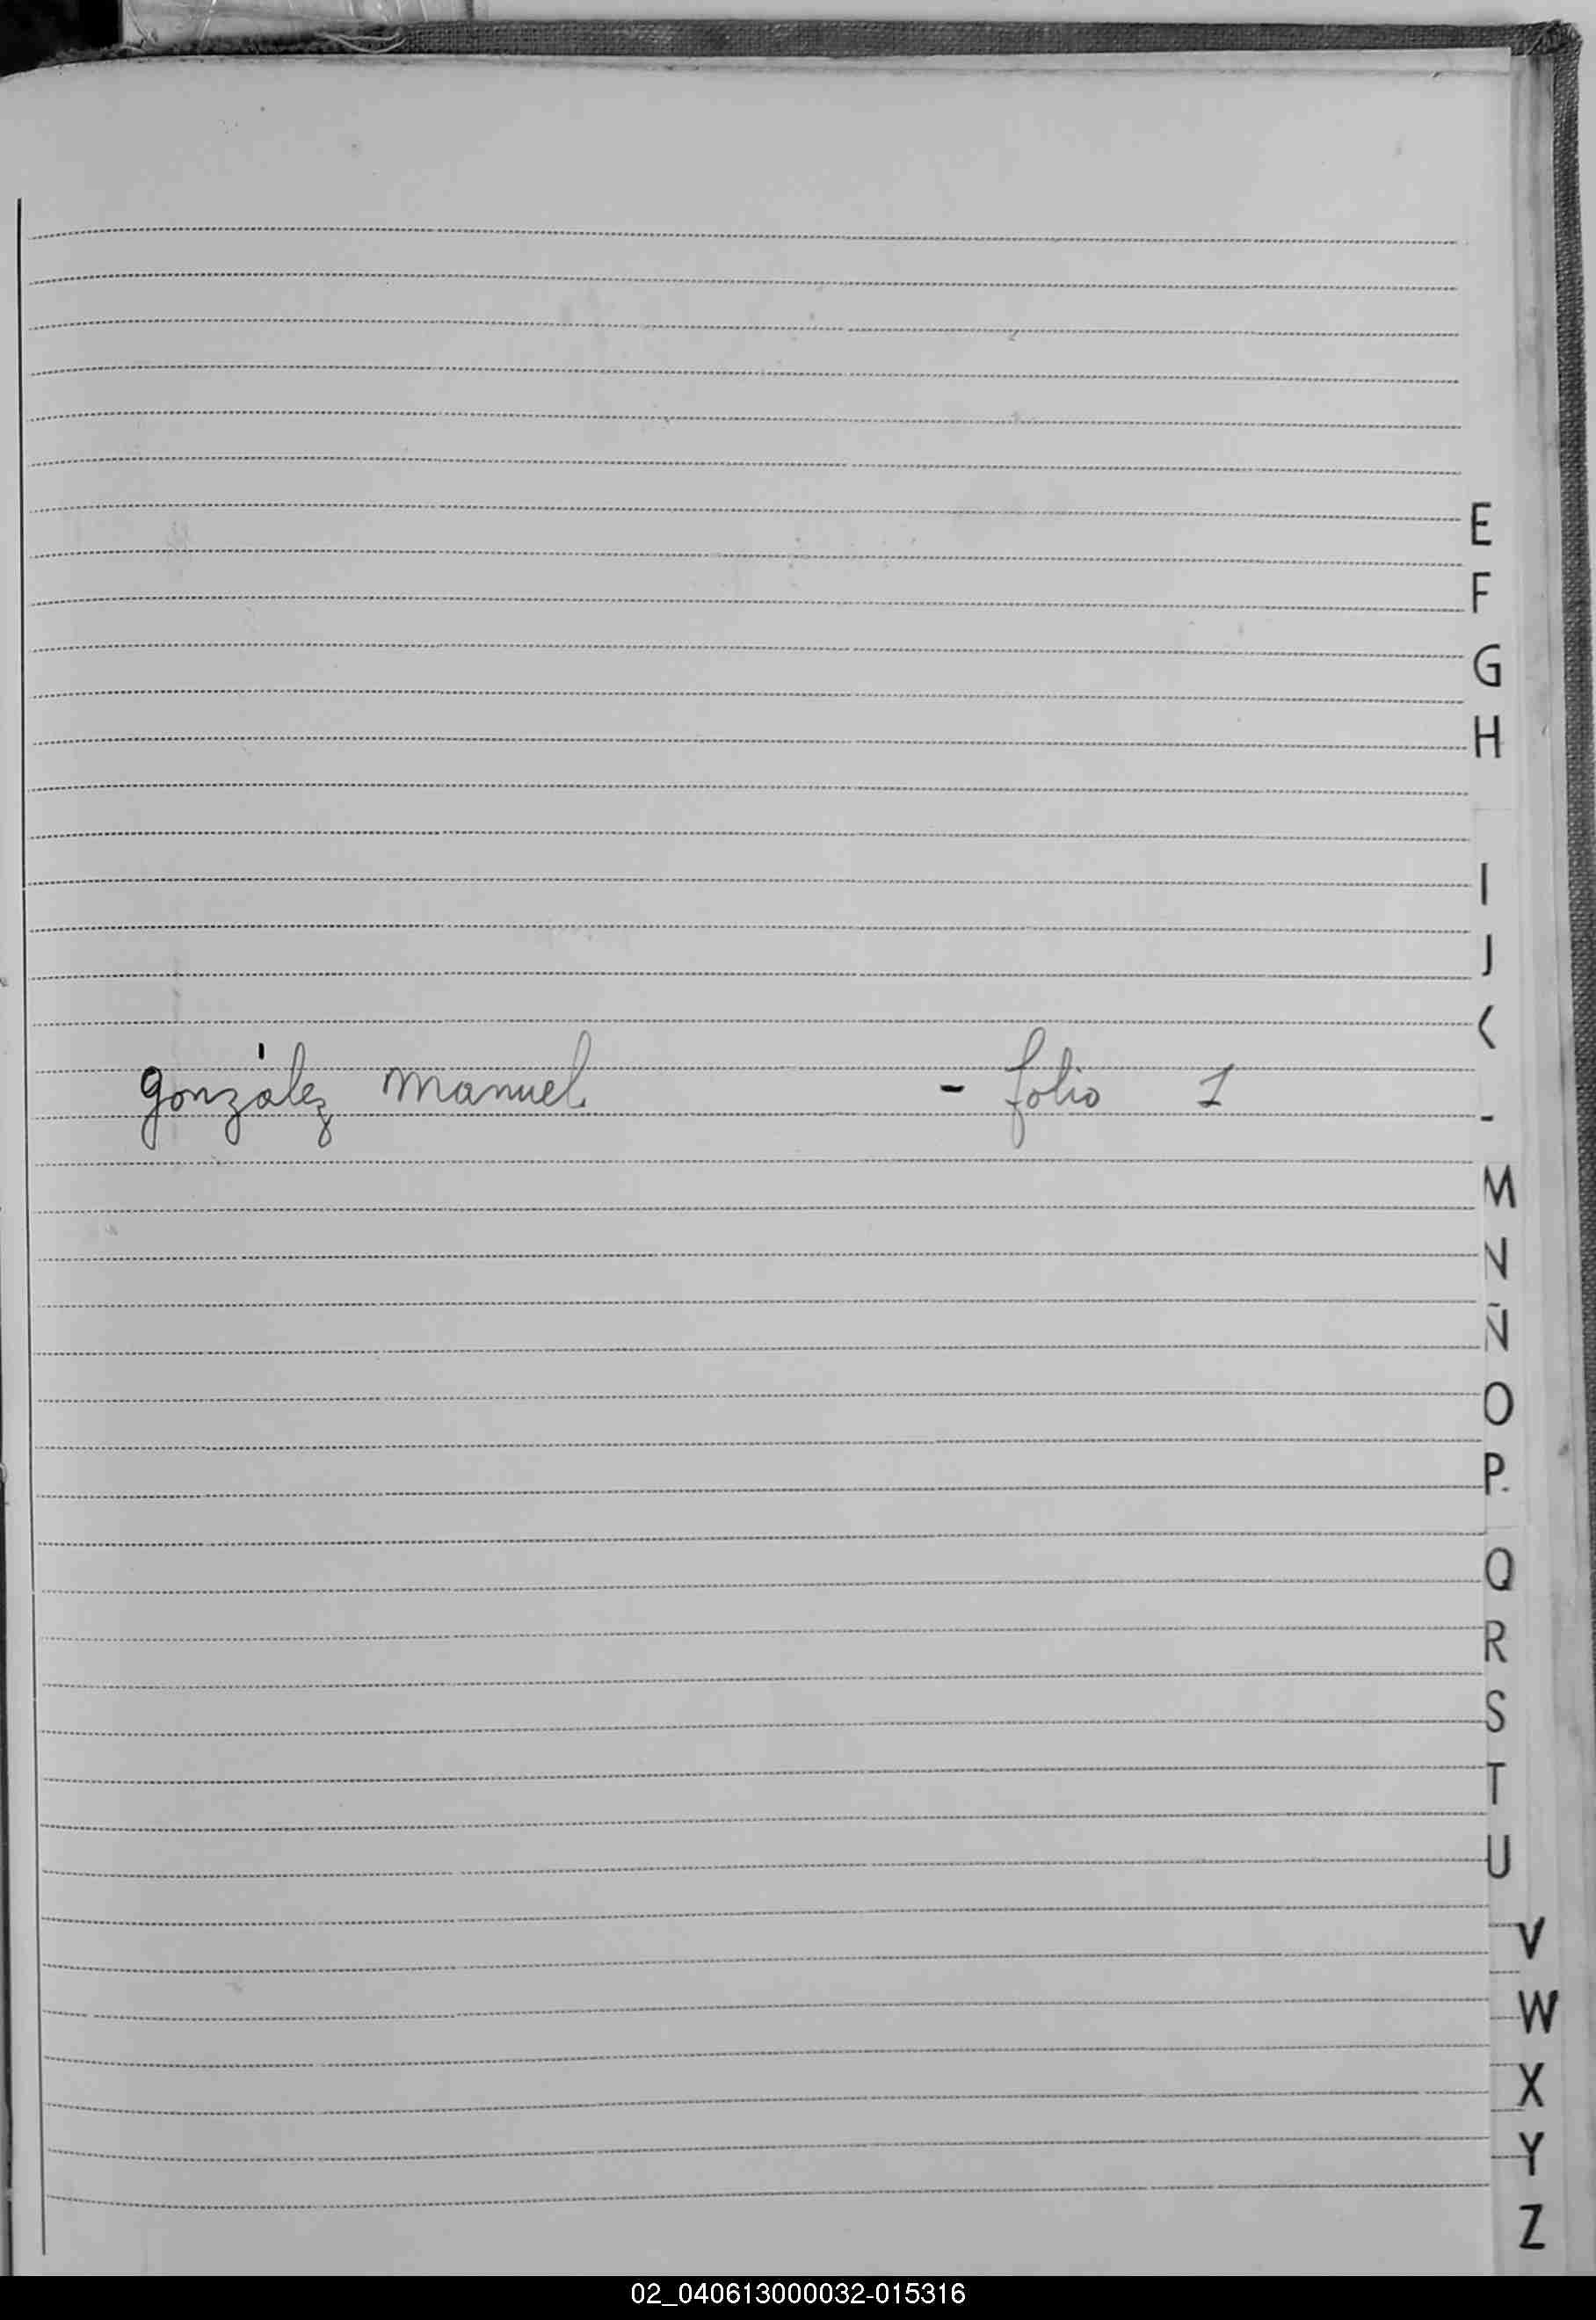 E
F
G
H
I
J
gonzález Manuel - folio 1
M
N
Ñ
O
P.
Q
R
S
T
U
V
W
X
Y
Z
02_040613000032-015316